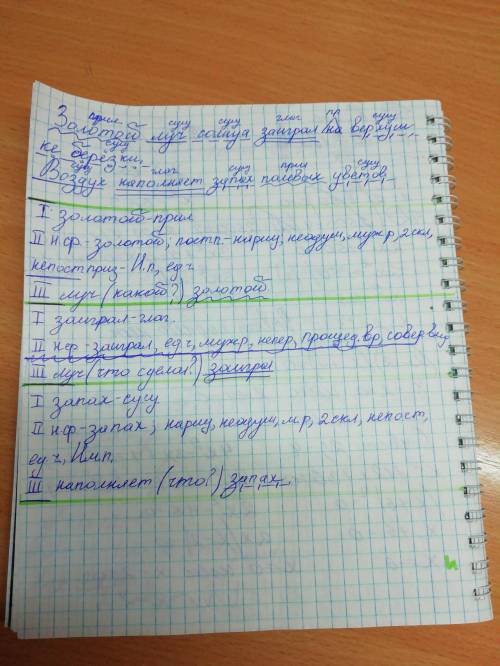 прил сущ сущ глаг пр сущ
Золотой луч солнца заиграл на верхуш
сущ
ке берёзки.
сущ глаг сущ прил сущ
Воздух наполняет запах полевых цветов
I золотой-прил
II н.ф.- золотой, постп.-нариц, неодуш, муж.р, 2скл,
непостприз- И.п, ед.ч.
III луч (какой?) золотой
I заиграл-глаг.
II н.ф-заиграл, ед.ч, муж.р, непер, прошед.вр, совер.вид
III луч (что сделал?) заиграл
I запах-сущ
II н.ф-запах, нариц, неодуш, м.р, 2скл, непост,
ед.ч, И.п.
III наполняет (что?) запах.